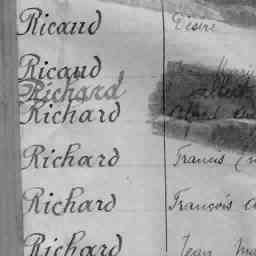 Ricaud Désiré
Ricaud Marie
Richard albert
Richard alfred
Richard Francis
Richard François
Richard Jean